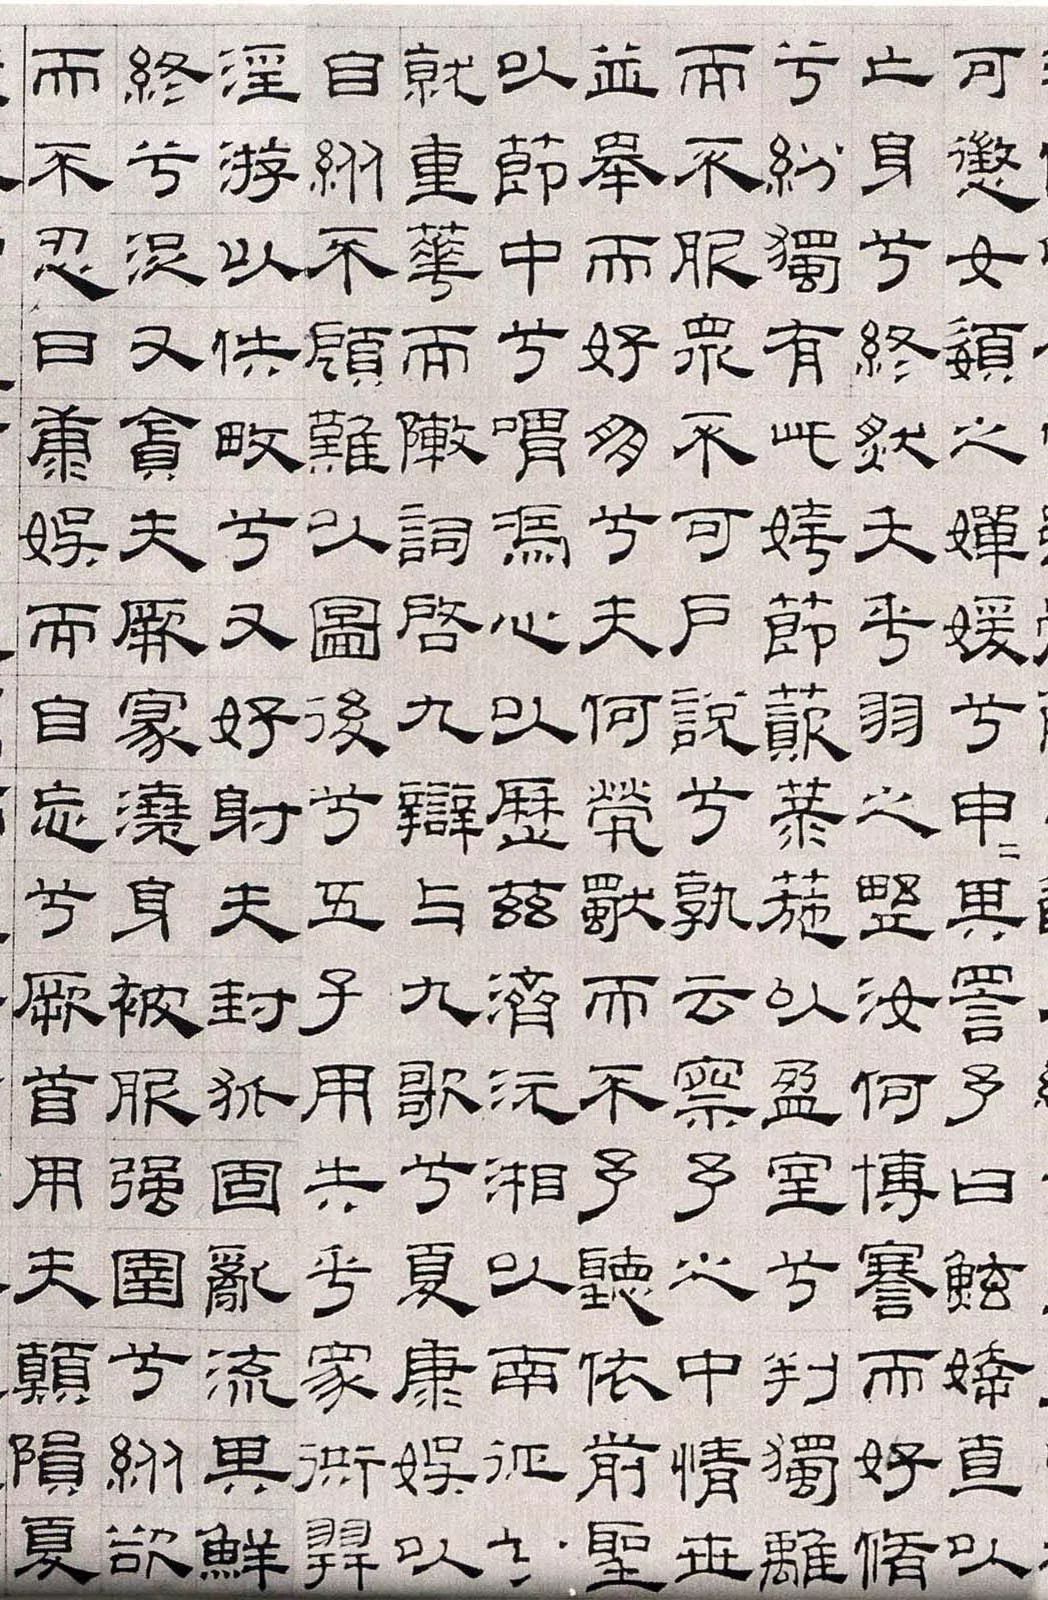 可懲女嬃之嬋媛兮申=其詈予曰鮌婞直以
亡身兮終然夭乎羽之野汝何博謇而好脩
兮紛獨有此姱節薋菉葹以盈室兮判獨離
而不服眾不可戶說兮孰云察予之中情世
並舉而好朋兮夫何煢獨而不予聽依前聖
以節中兮喟馮心以歷茲濟沅湘以南征兮
就重華而敶詞啓九辯与九歌兮夏康娛以
自縱不顧難以圖後兮五子用失乎家衖羿
淫游以佚畋兮又好射夫封狐固亂流其鮮
終兮浞又貪夫厥家澆身被服强圉兮縱欲
而不忍日康娛而自忘兮厥首用夫顛隕夏